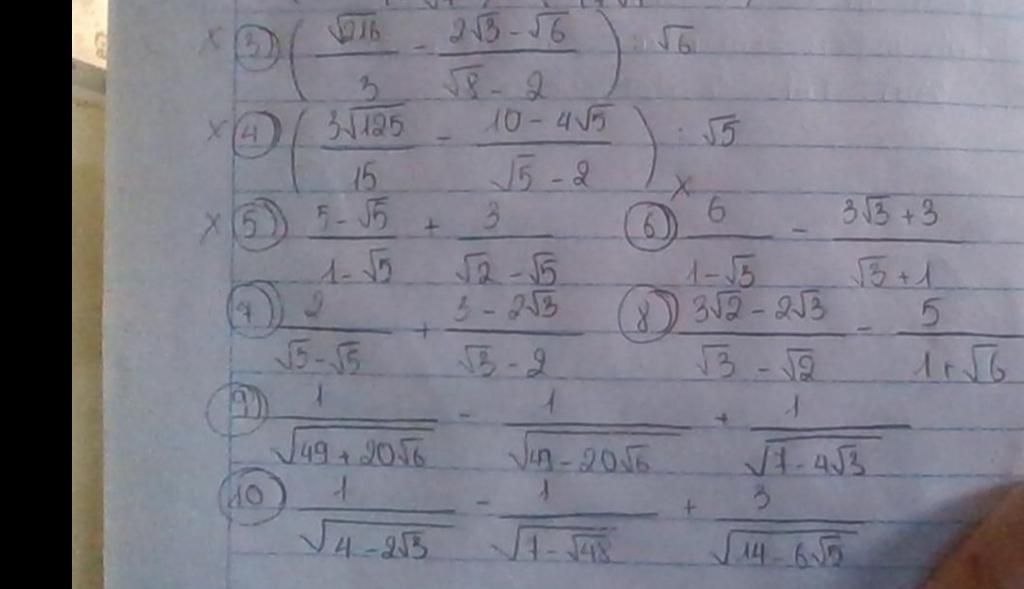 x 3) ( √216 / 3 - (2√3 - √6) / (√8 - 2) ) : √6
x 4) ( 3√125 / 15 - (10 - 4√5) / (√5 - 2) ) : √5
x 5) (5 - √5) / (1 - √5) + 3 / (√2 - √5) x 6) 6 / (1 - √3) - (3√3 + 3) / (√3 + 1)
7) 2 / (√5 - √5) + (3 - 2√3) / (√3 - 2) 8) (3√2 - 2√3) / (√3 - √2) - 5 / (1 + √6)
9) 1 / √(49 + 20√6) - 1 / √(49 - 20√6) + 1 / √(7 - 4√3)
10) 1 / √(4 - 2√3) - 1 / √(7 - √48) + 3 / √(14 - 6√5)